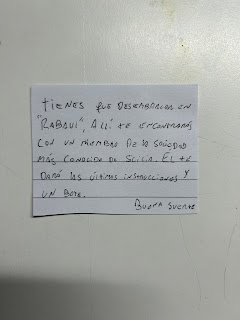 TIENES QUE DESEMBARCAR EN
"RABAUL", ALLÍ TE ENCONTRARÁS
CON UN MIEMBRO DE LA SOCIEDAD
MÁS CONOCIDA DE SICILIA. EL TE
DARÁ LAS ÚLTIMAS INSTRUCCIONES Y
UN BOTE.
BUENA SUERTE